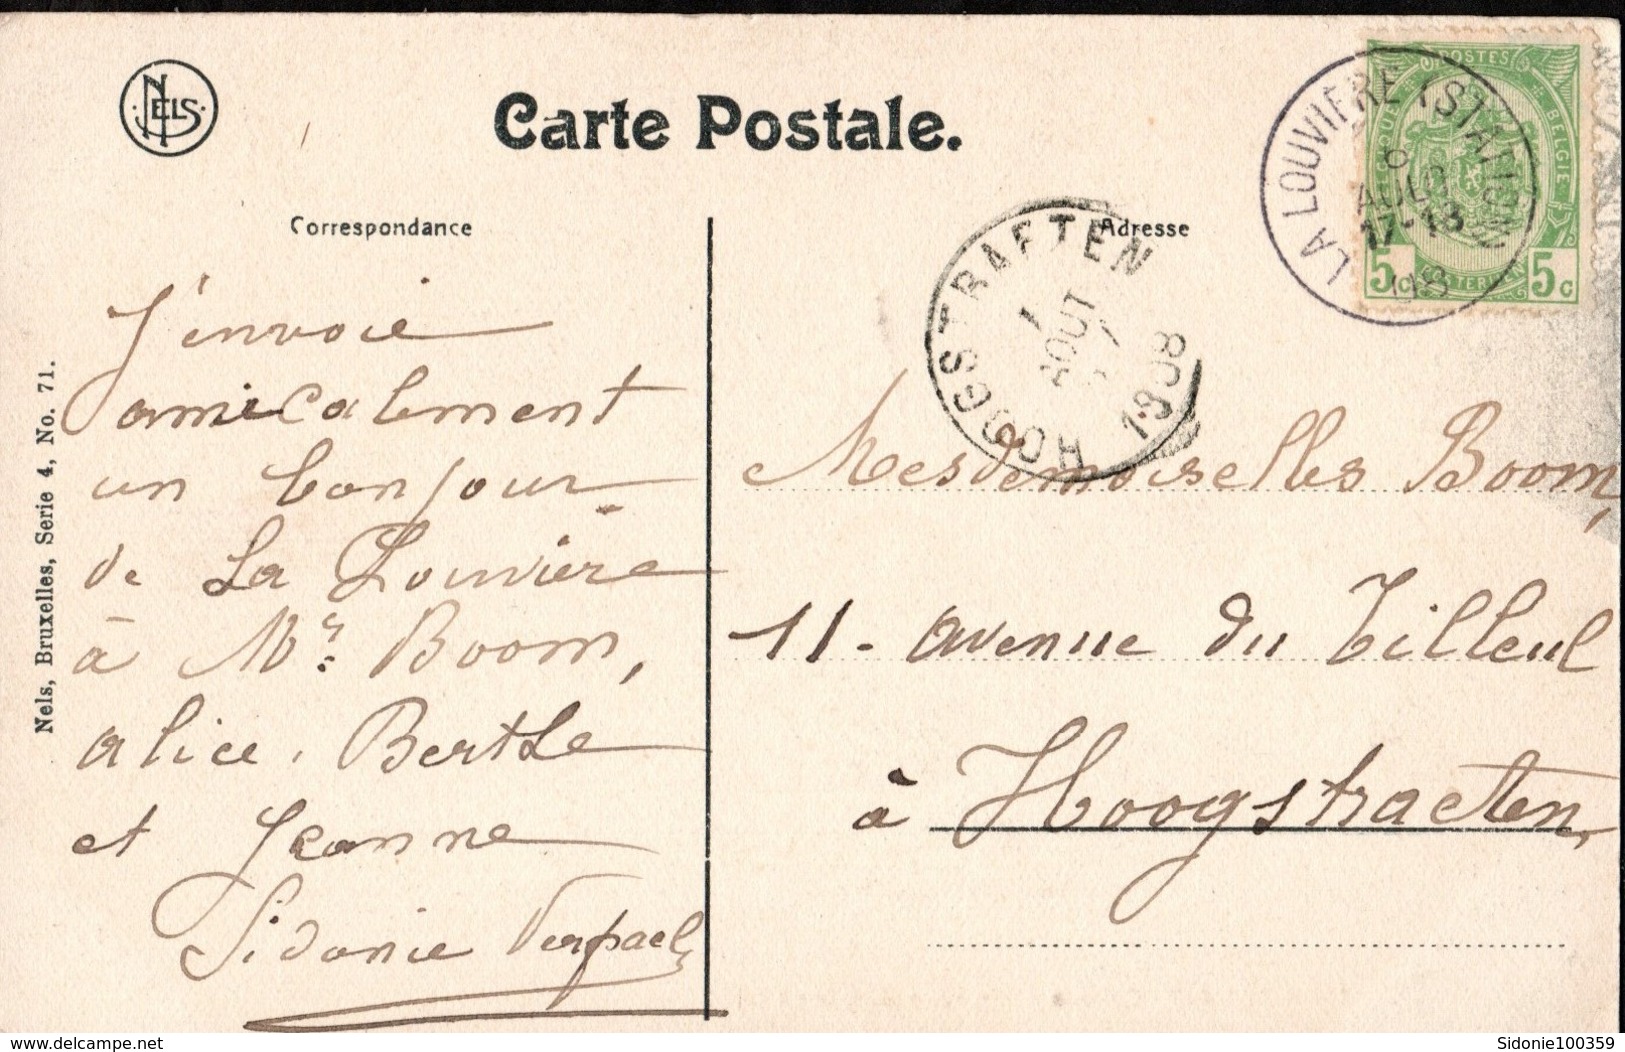 NELS
Carte Postale.
Correspondance
Adresse
POSTES
BELGIE
5c
5c
LA LOUVIERE (STATION)
6
17-18
08
HOOGSTRAETEN
AOUT
1908
J'envoie
amicalement
un bonjour
de La Louvière
à Mr. Boom,
alice, Berthe
et Jeanne
Sidonie
Mesdemoiselles Boom,
11 - avenue du Tilleul
à Hoogstraeten
Nels, Bruxelles, Serie 4, No. 71.
www.delcampe.net
Sidonie100359